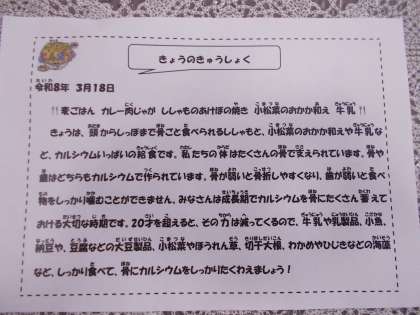 きょうのきゅうしょく
令和8年 3月18日
🍴麦ごはん カレー肉じゃが ししゃものあけぼの焼き 小松菜のおかか和え 牛乳🍴
きょうは、頭からしっぽまで骨ごと食べられるししゃもと、小松菜のおかか和えや牛乳な
ど、カルシウムいっぱいの給食です。私たちの体はたくさんの骨で支えられています。骨や
歯はどちらもカルシウムで作られています。骨が弱いと骨折しやすくなり、歯が弱いと食べ
物をしっかり噛むことができません。みなさんは成長期でカルシウムを骨にたくさん蓄えて
おける大切な時期です。20才を超えると、その力は減ってくるので、牛乳や乳製品、小魚、
納豆や、豆腐などの大豆製品、小松菜やほうれん草、切干大根、わかめやひじきなどの海藻
など、しっかり食べて、骨にカルシウムをしっかりたくわえましょう！